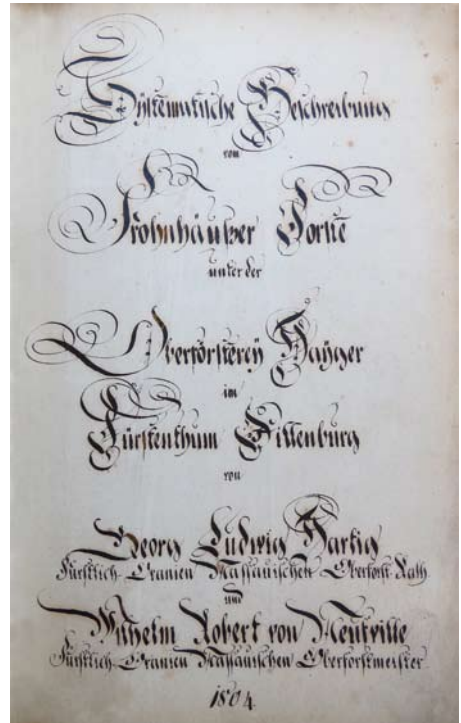 Systematische Beschreibung
vom
Frohnhäußer Forste
unter der
Oberförsterey Hayger
im
Fürstenthum Dillenburg
von
Georg Ludwig Hartig
Fürstlich Oranien Nassauischen Oberforst Rath
und
Wilhelm Robert von Neufville
Fürstlich Oranien Nassauischen Oberforstmeister
1804.